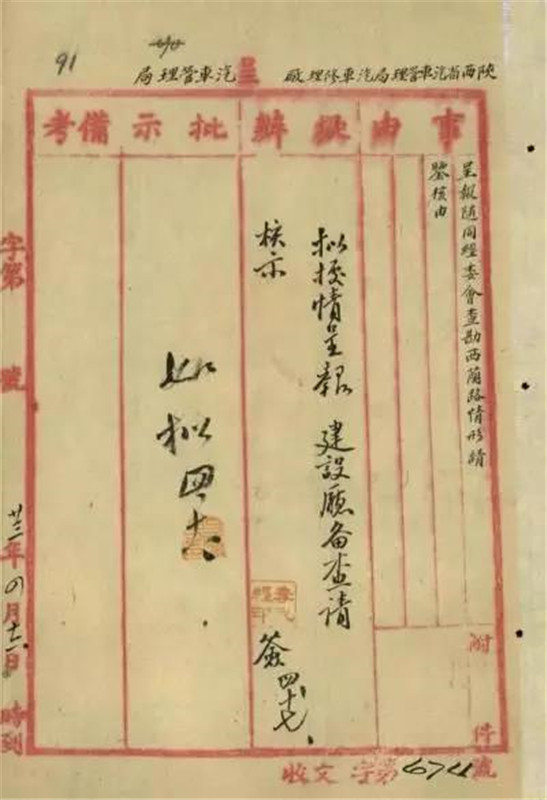 91
陝西省汽車管理局汽車修理厰 呈 汽車管理局
事由 擬辦 批示 備考
呈報随同經委會查勘西蘭路情形請
鑒核由
附 件
拟據情呈報 建設廳备查請
核示
簽 四
如拟 四十八
字第 號 廿三年四月 日 時到
收文 字第674號